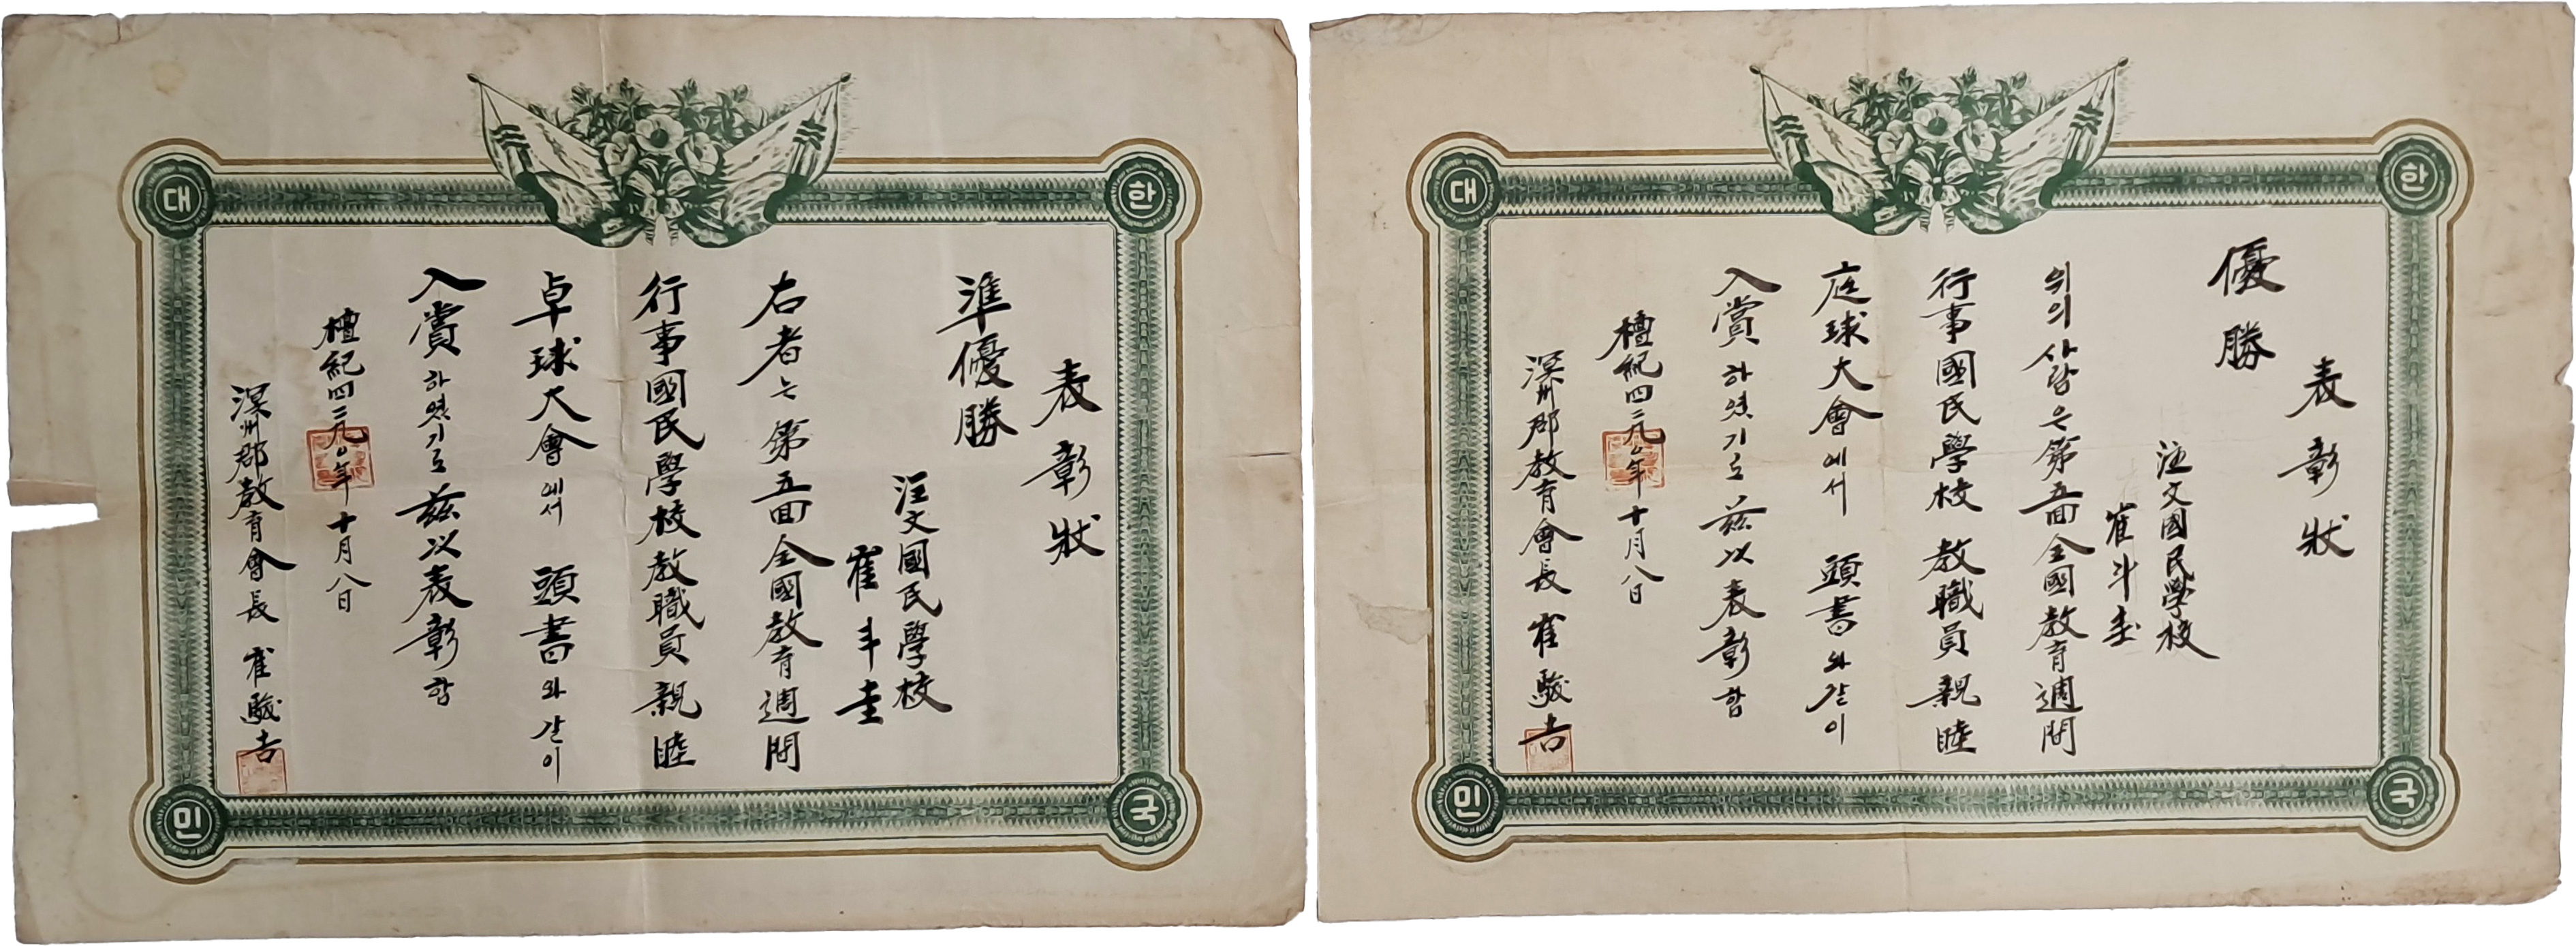 대
한
민
국
表彰狀
準優勝
注文國民學校
崔斗圭
右者는 第五回全國教育週間
行事國民學校教職員親睦
卓球大會에서 頭書와같이
入賞하였기로 玆以表彰함
檀紀四二九〇年十月八日
溟州郡教育會長 崔駿吉
대
한
민
국
表彰狀
優勝
注文國民學校
崔斗圭
위의 사람은 第五回全國教育週間
行事國民學校 教職員親睦
庭球大會에서 頭書와같이
入賞하였기로 玆以表彰함
檀紀四二九〇年十月八日
溟州郡教育會長 崔駿吉